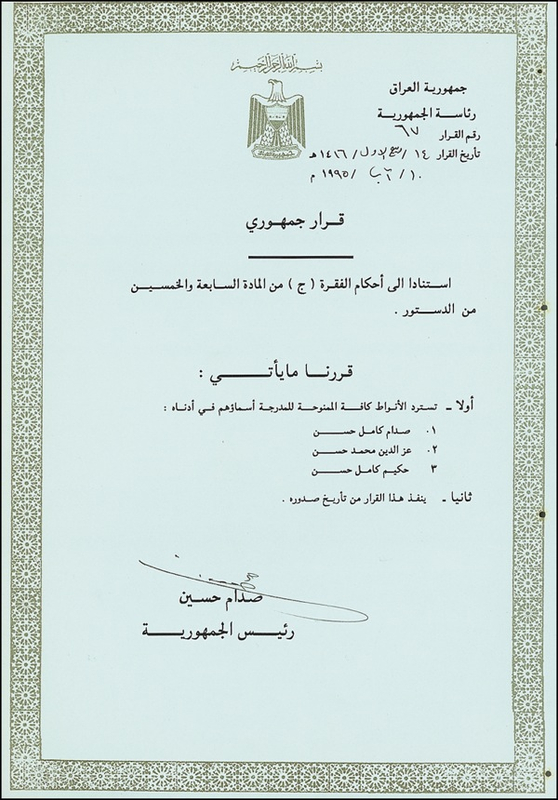 بسم الله الرحمن الرحيم
جمهورية العراق
رئاسة الجمهورية
رقم القرار ٦٧
تأريخ القرار ١٤/ربيع الاول/١٤١٦ هـ
١٠/آب/١٩٩٥ م
قرار جمهوري
استنادا الى أحكام الفقرة ( ج ) من المادة السابعة والخمسين
من الدستور .
قررنا مايأتي :
أولا ـ تسترد الأنواط كافة الممنوحة للمدرجة أسماؤهم في أدناه :
٠١ صدام كامل حسن
٠٢ عز الدين محمد حسن
٣ حكيم كامل حسن
ثانيا ـ ينفذ هذا القرار من تأريخ صدوره .
صدام حسين
رئيس الجمهورية